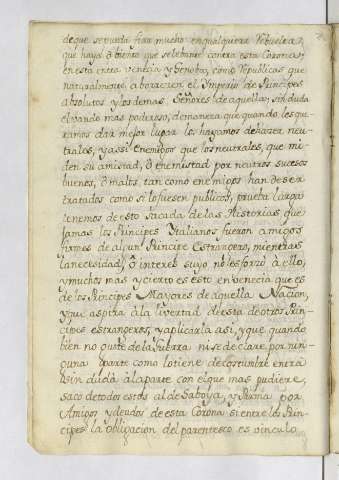 de que se pueda fiar mucho en qualquiera rebuelta,
que haya, ô bienga que se lebante contra esta Corona;
en esta entra Venecia, y Genoba, como Republicas que
naturalmente aborrecen el Imperio de Principes
absolutos, y los demas Señores de aquella, sin duda
el vando mas poderoso, de manera que quando les que
ramos dar mejor lugar los hayamos de hazer neu
trales, y assi enemigos que los neutrales, que mi
den su amistad, ô enemistad por nuestros sucesos
buenos, ô malos, tan como enemigos han de ser
tratados como si lo fuesen publicos, prueba larga
tenemos de esto sacada de las Historias, que
jamas los Principes Italianos fueron amigos
firmes de algun Principe Estrangero, mientras
la necesidad, ô interes suyo no les forzó â ello,
y mucho mas y cierto es esto en Venecia que es
de los Principes Mayores de aquella Nacion,
y que aspira â la livertad de esta de otros Prin
cipes estrangeros, y aplicarla asi, y que quando
bien no guste de la Guerra ni se declare por nin
guna parte como lo tiene de costumbre entra
sin duda â la parte con el que mas pudiere,
saco de todos estos al de Saboya, y Parma por
Amigos y deudos de esta Corona si entre los Prin
cipes la obligacion del parentesco es vinculo